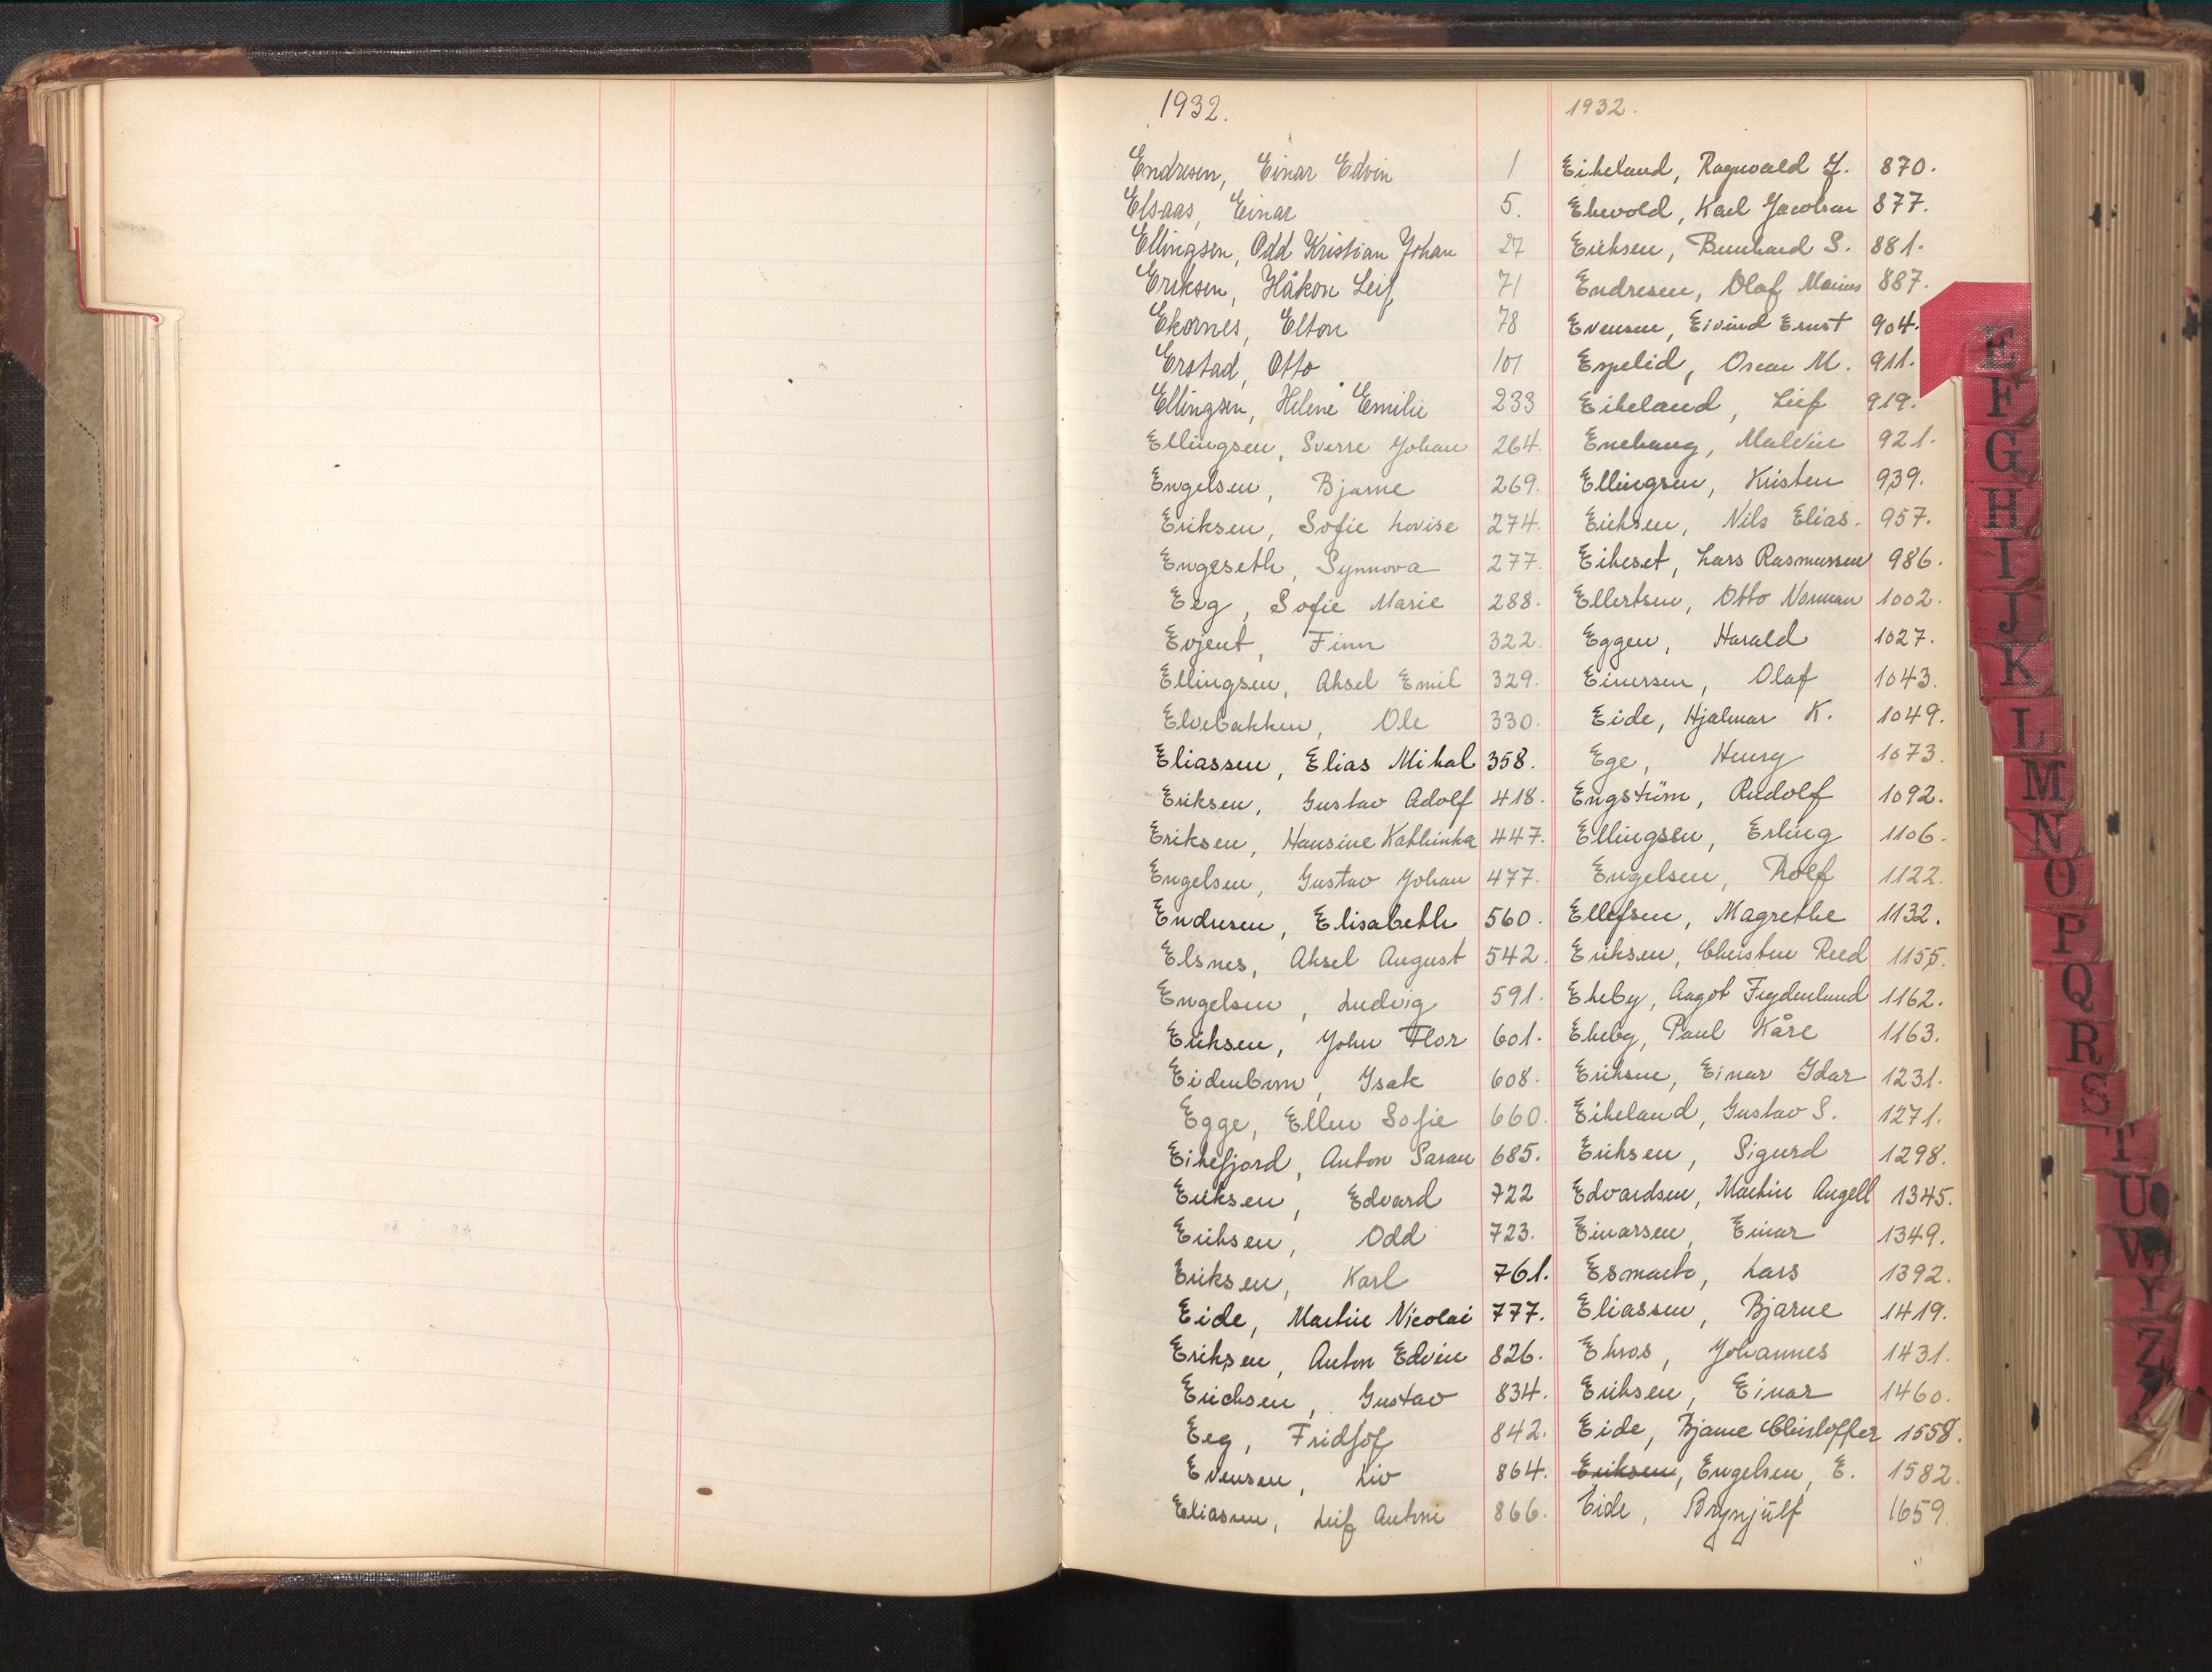 1932.
Endresen, Einar Edvin 1
Elsaas, Einar 5.
Ellingsen, Odd Kristian Johan 27
Eriksen, Håkon Leif 71
Ekornes, Elton 78
Erstad, Otto 101
Ellingsen, Helene Emilie 233
Ellingsen, Sverre Johan 264.
Engelsen, Bjarne 269.
Eriksen, Sofie Lovise 274.
Engeseth, Synnova 277.
Eeg, Sofie Marie 288.
Evjent, Finn 322.
Ellingsen, Aksel Emil 329.
Elvebakken, Ole 330.
Eliassen, Elias Mikal 358.
Eriksen, Gustav Adolf 418.
Eriksen, Hansine Kathinka 447.
Engelsen, Gustav Johan 477.
Endresen, Elisabeth 560.
Elsnes, Aksel August 542.
Engelsen, Ludvig 591.
Eriksen, John Flor 601.
Eidenbom, Isak 608.
Egge, Ellen Sofie 660.
Eikefjord, Anton 685.
Eriksen, Edvard 722
Eriksen, Odd 723.
Eriksen, Karl 761.
Eide, Martin Nicolai 777.
Eriksen, Anton Edvin 826.
Erichsen, Gustav 834.
Eeg, Fridjof 842.
Evensen, Liv 864.
Eliassen, Leif Antoni 866.
1932.
Eikeland, Ragnvald J. 870.
Ekevold, Karl Jacobsen 877.
Eriksen, Bernhard S. 881.
Endresen, Olaf Marius 887.
Evensen, Eivind Ernst 904.
Espelid, Oscar M. 911.
Eikeland, Leif 919.
Enehaug, Malvin 921.
Ellingsen, Kristen 939.
Eriksen, Nils Elias. 957.
Eikeset, Lars Rasmussen 986.
Ellertsen, Otto Norman 1002.
Eggen, Harald 1027.
Einersen, Olaf 1043.
Eide, Hjalmar K. 1049.
Ege, Henry 1073.
Engström, Rudolf 1092.
Ellingsen, Erling 1106.
Engelsen, Rolf 1122.
Ellefsen, Magrethe 1132.
Eriksen, Christen Reed 1155.
Ekeby, Aagot Frydenlund 1162.
Ekeby, Paul Kåre 1163.
Eriksen, Einar Idar 1231.
Eikeland, Gustav S. 1271.
Eriksen, Sigurd 1298.
Edvardsen, Martin Angell 1345.
Einarsen, Einar 1349.
Esmark, Lars 1392.
Eliassen, Bjarne 1419.
Ekros, Johannes 1431.
Eriksen, Einar 1460.
Eide, Bjarne Christoffer 1558.
Eriksen, Engelsen, E. 1582.
Eide, Brynjulf 1659.
E
F
G
H
I
J
K
L
M
N
O
P
Q
R
S
T
U
W
Y
Z